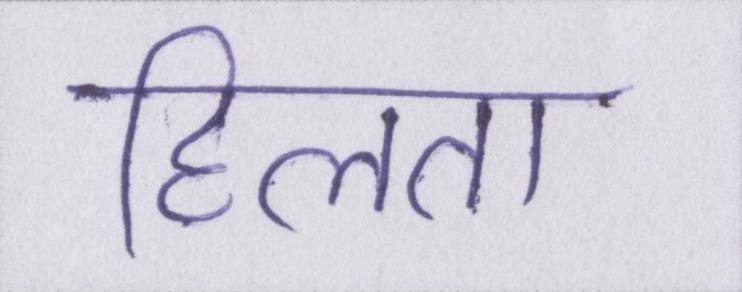 हिलता